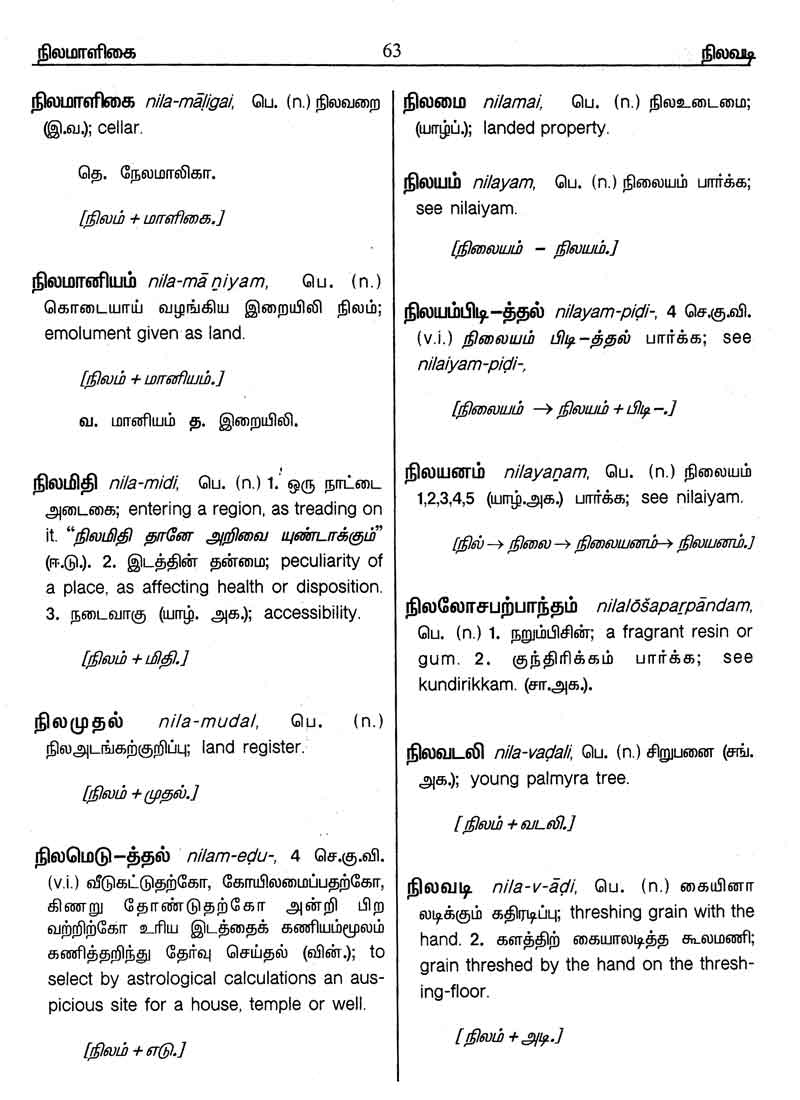 நிலமாளிகை 63 நிலவடி
நிலமாளிகை nila-māḷigai, பெ. (n.) நிலவறை
(இ.வ.); cellar.
தெ. நேலமாலிகா.
[நிலம் + மாளிகை.]
நிலமானியம் nila-mā ṉiyam, பெ. (n.)
கொடையாய் வழங்கிய இறையிலி நிலம்;
emolument given as land.
[நிலம் + மானியம்.]
வ. மானியம் த. இறையிலி.
நிலமிதி nila-midi, பெ. (n.) 1. ஒரு நாட்டை
அடைகை; entering a region, as treading on
it. “நிலமிதி தானே அறிவை யுண்டாக்கும்”
(ஈ.டு.). 2. இடத்தின் தன்மை; peculiarity of
a place, as affecting health or disposition.
3. நடைவாகு (யாழ். அக.); accessibility.
[நிலம் + மிதி.]
நிலமுதல் nila-mudal, பெ. (n.)
நிலஅடங்கற்குறிப்பு; land register.
[நிலம் + முதல்.]
நிலமெடு-த்தல் nilam-eḍu-, 4 செ.கு.வி.
(v.i.) வீடுகட்டுதற்கோ, கோயிலமைப்பதற்கோ,
கிணறு தோண்டுதற்கோ அன்றி பிற
வற்றிற்கோ உரிய இடத்தைக் கணியம்மூலம்
கணித்தறிந்து தேர்வு செய்தல் (வின்.); to
select by astrological calculations an aus-
picious site for a house, temple or well.
[நிலம் + எடு.]
நிலமை nilamai, பெ. (n.) நிலஉடைமை;
(யாழ்ப்.); landed property.
நிலயம் nilayam, பெ. (n.) நிலையம் பார்க்க;
see nilaiyam.
[நிலையம் – நிலயம்.]
நிலயம்பிடி-த்தல் nilayam-piḍi-, 4 செ.கு.வி.
(v.i.) நிலையம் பிடி-த்தல் பார்க்க; see
nilaiyam-piḍi-,
[நிலையம் → நிலயம் + பிடி-.]
நிலயனம் nilayaṉam, பெ. (n.) நிலையம்
1,2,3,4,5 (யாழ்.அக.) பார்க்க; see nilaiyam.
[நில் → நிலை → நிலையனம் → நிலயனம்.]
நிலலோசபற்பாந்தம் nilalōšaparpāndam,
பெ. (n.) 1. நறும்பிசின்; a fragrant resin or
gum. 2. குந்திரிக்கம் பார்க்க; see
kundirikkam. (சா.அக.).
நிலவடலி nila-vaḍali, பெ. (n.) சிறுபனை (சங்.
அக.); young palmyra tree.
[நிலம் + வடலி.]
நிலவடி nila-v-āḍi, பெ. (n.) கையினா
லடிக்கும் கதிரடிப்பு; threshing grain with the
hand. 2. களத்திற் கையாலடித்த கூலமணி;
grain threshed by the hand on the thresh-
ing-floor.
[நிலம் + அடி.]